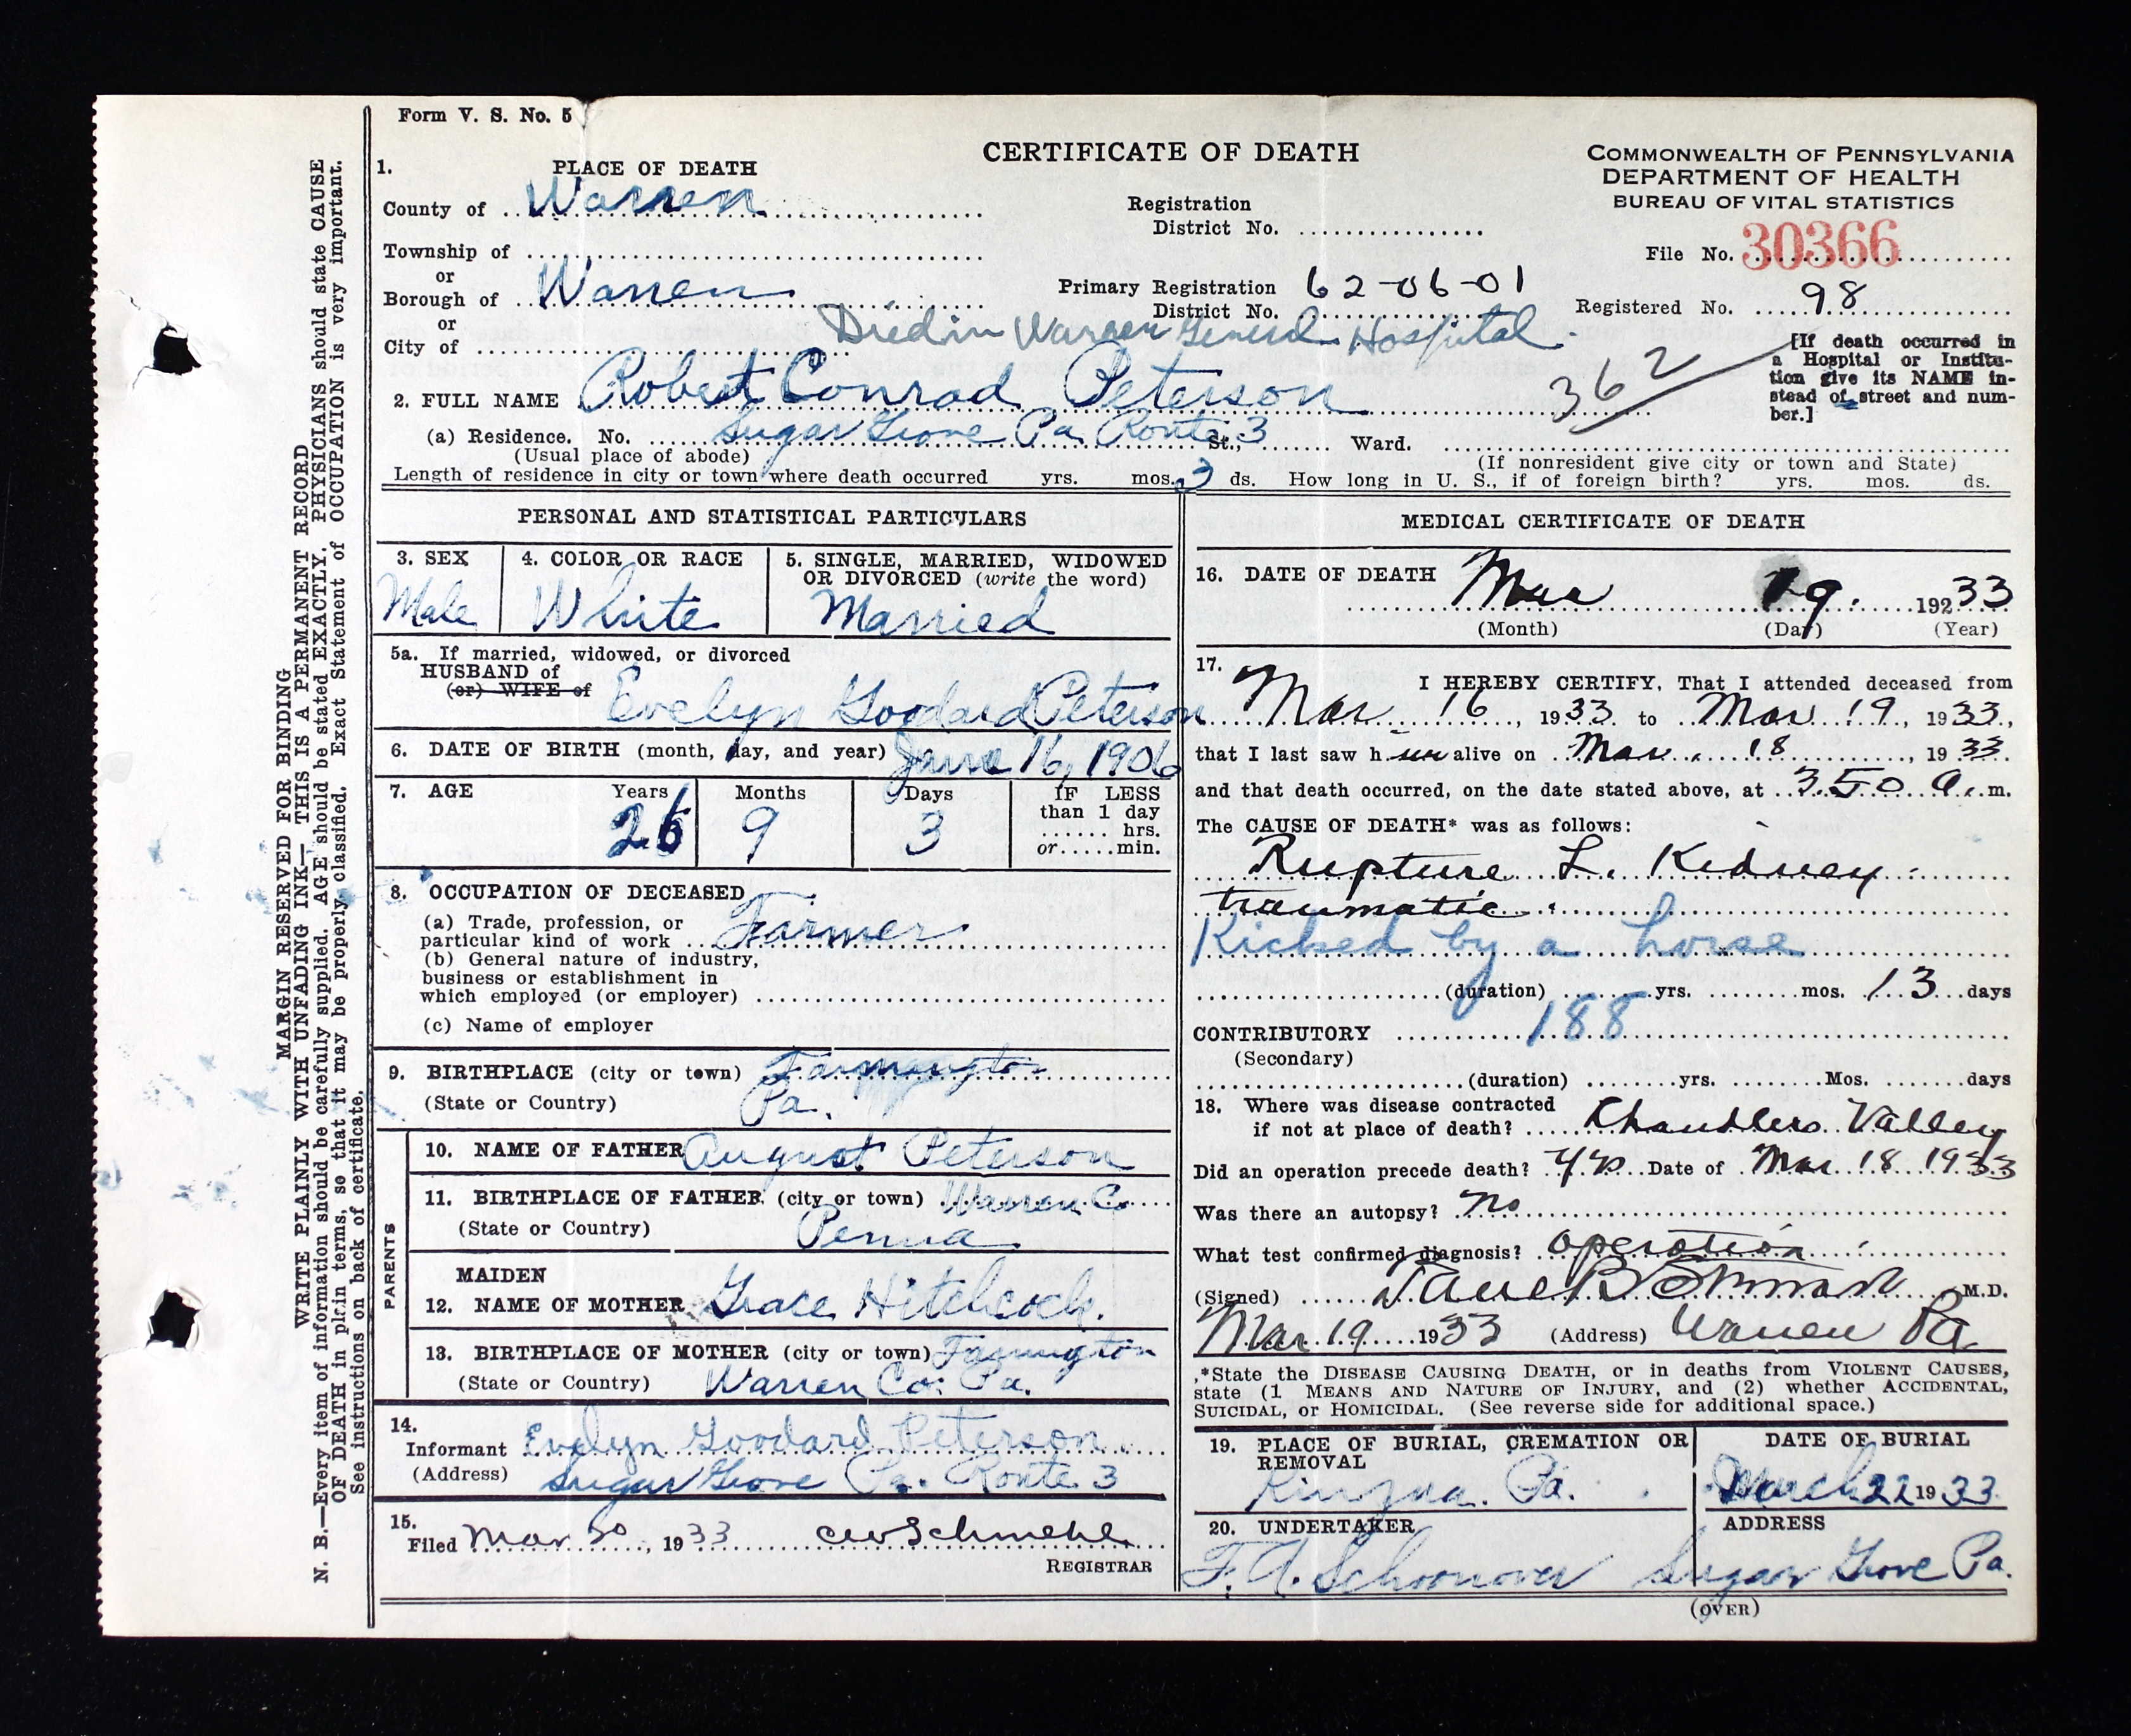 Form V. S. No. 5
CERTIFICATE OF DEATH
COMMONWEALTH OF PENNSYLVANIA
DEPARTMENT OF HEALTH
BUREAU OF VITAL STATISTICS
1. PLACE OF DEATH
County of Warren
Registration District No.
File No. 30366
Township of
or
Borough of Warren
Primary Registration District No. 62-06-01
Registered No. 98
or
City of
Died in Warren General Hospital
[If death occurred in
a Hospital or Institu-
tion give its NAME in-
stead of street and num-
ber.]
362
2. FULL NAME Robert Conrad Peterson
(a) Residence. No. Sugar Grove Pa Route 3 St., Ward.
(Usual place of abode)
(If nonresident give city or town and State)
Length of residence in city or town where death occurred yrs. mos. 3 ds. How long in U. S., if of foreign birth? yrs. mos. ds.
PERSONAL AND STATISTICAL PARTICULARS
3. SEX
Male
4. COLOR OR RACE
White
5. SINGLE, MARRIED, WIDOWED
OR DIVORCED (write the word)
Married
5a. If married, widowed, or divorced
HUSBAND of
(or) WIFE of
Evelyn Goodard Peterson
6. DATE OF BIRTH (month, day, and year) June 16, 1906
7. AGE Years Months Days
26 9 3
IF LESS
than 1 day
hrs.
or min.
8. OCCUPATION OF DECEASED
(a) Trade, profession, or
particular kind of work Farmer
(b) General nature of industry,
business or establishment in
which employed (or employer)
(c) Name of employer
9. BIRTHPLACE (city or town) Farmington
(State or Country) Pa.
PARENTS
10. NAME OF FATHER August Peterson
11. BIRTHPLACE OF FATHER (city or town) Warren Co
(State or Country) Penna
MAIDEN
12. NAME OF MOTHER Grace Hitchcock.
13. BIRTHPLACE OF MOTHER (city or town) Farmington
(State or Country) Warren Co. Pa.
14.
Informant Evelyn Goodard Peterson
(Address) Sugar Grove Pa. Route 3
15.
Filed Mar 20, 1933 CW Schmehl
REGISTRAR
MEDICAL CERTIFICATE OF DEATH
16. DATE OF DEATH
Mar 19. 192 33
(Month) (Day) (Year)
17.
I HEREBY CERTIFY, That I attended deceased from
Mar 16, 1933 to Mar 19, 1933,
that I last saw h im alive on Mar. 18, 1933.
and that death occurred, on the date stated above, at 3.50 a. m.
The CAUSE OF DEATH* was as follows:
Rupture L. Kidney
traumatic.
Kicked by a horse
(duration) yrs. mos. 13 days
CONTRIBUTORY 188
(Secondary)
(duration) yrs. Mos. days
18. Where was disease contracted
if not at place of death? Chandlers Valley
Did an operation precede death? yes Date of Mar 18 1933
Was there an autopsy? no
What test confirmed diagnosis? operation
(Signed) M.D.
Mar 19 1933 (Address) Warren Pa
*State the DISEASE CAUSING DEATH, or in deaths from VIOLENT CAUSES,
state (1 MEANS AND NATURE OF INJURY, and (2) whether ACCIDENTAL,
SUICIDAL, or HOMICIDAL. (See reverse side for additional space.)
19. PLACE OF BURIAL, CREMATION OR
REMOVAL
Kinzua. Pa.
DATE OF BURIAL
March 22 1933
20. UNDERTAKER
F. A. Schoonover
ADDRESS
Sugar Grove Pa.
(OVER)
MARGIN RESERVED FOR BINDING
WRITE PLAINLY WITH UNFADING INK— THIS IS A PERMANENT RECORD
N. B.—Every item of information should be carefully supplied. AGE should be stated EXACTLY. PHYSICIANS should state CAUSE
OF DEATH in plain terms, so that it may be properly classified. Exact Statement of OCCUPATION is very important.
See instructions on back of certificate.